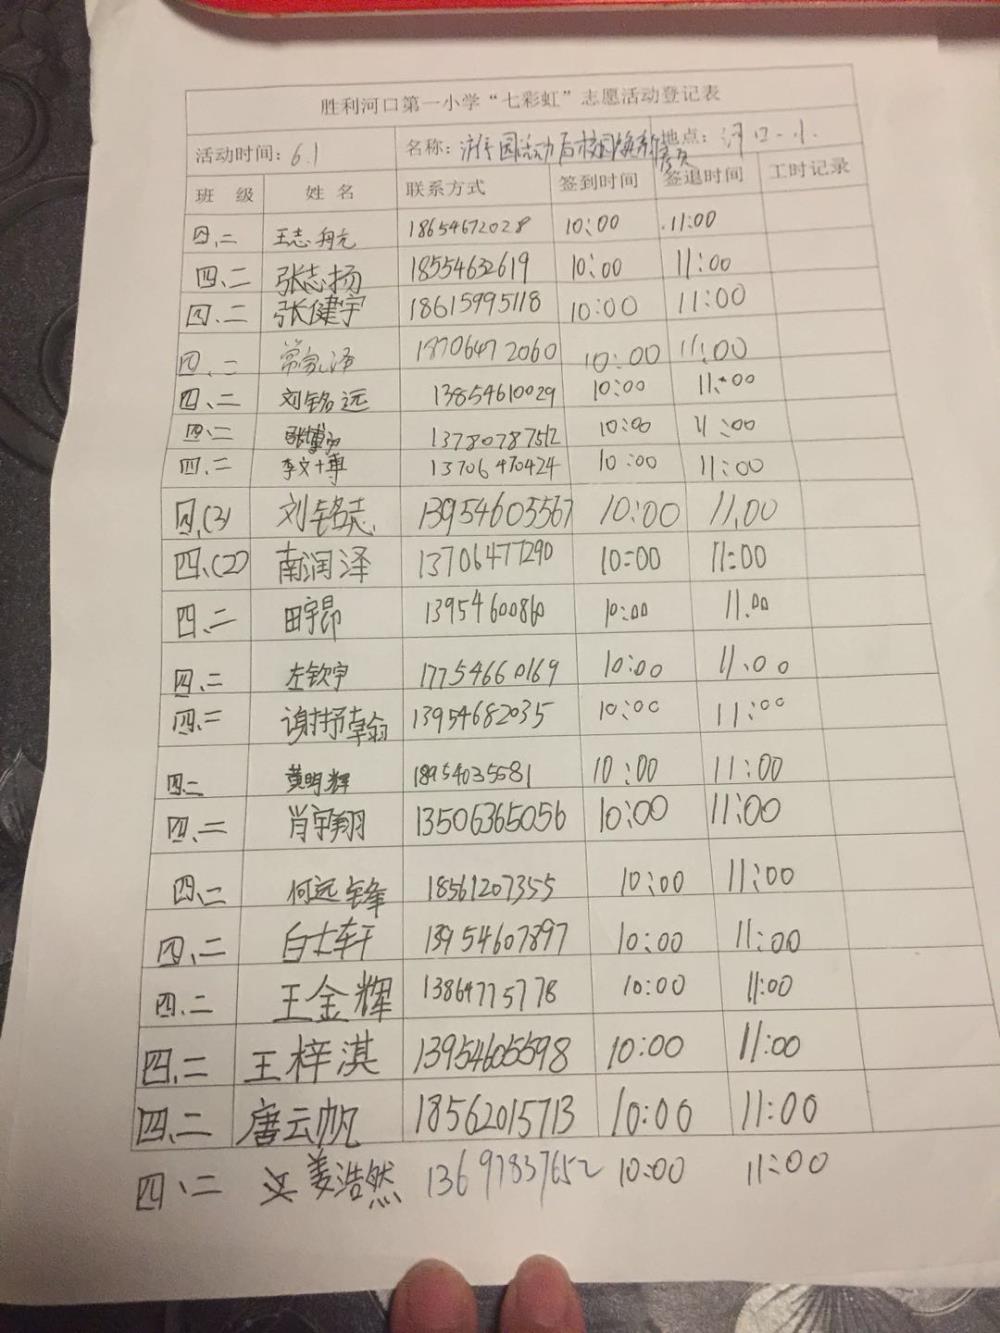 胜利河口第一小学“七彩虹”志愿活动登记表
活动时间：6.1 名称：游园活动后校园 地点：河口一小.
班 级 姓 名 联系方式 签到时间 签退时间 工时记录
四、二 王志 18654672028 10:00 11:00
四、二 张志扬 18554632619 10:00 11:00
四、二 张健宇 18615995118 10:00 11:00
四、二 常 泽 18706472060 10:00 11:00
四、二 刘铭远 13854610029 10:00 11:00
四、二 张博 13780787512 10:00 11:00
四、二 李文博 13706470424 10:00 11:00
四、(3) 刘铭志 13954605567 10:00 11.00
四、(2) 南润泽 13706477290 10:00 11:00
四、二 田宇昂 13954600860 10:00 11.00
四、二 左钦宇 17754660169 10:00 11:00
四、二 谢抒翰 13954682035 10:00 11:00
四、二 黄明辉 18954035581 10:00 11:00
四、二 肖宇翔 13506365056 10:00 11:00
四、二 何远锋 18561207355 10:00 11:00
四、二 白士轩 13954607897 10:00 11:00
四、二 王金辉 13864775778 10:00 11:00
四、二 王梓淇 13954605598 10:00 11:00
四、二 唐云帆 18562015713 10:00 11:00
四、二 姜浩然 13697837652 10:00 11:00